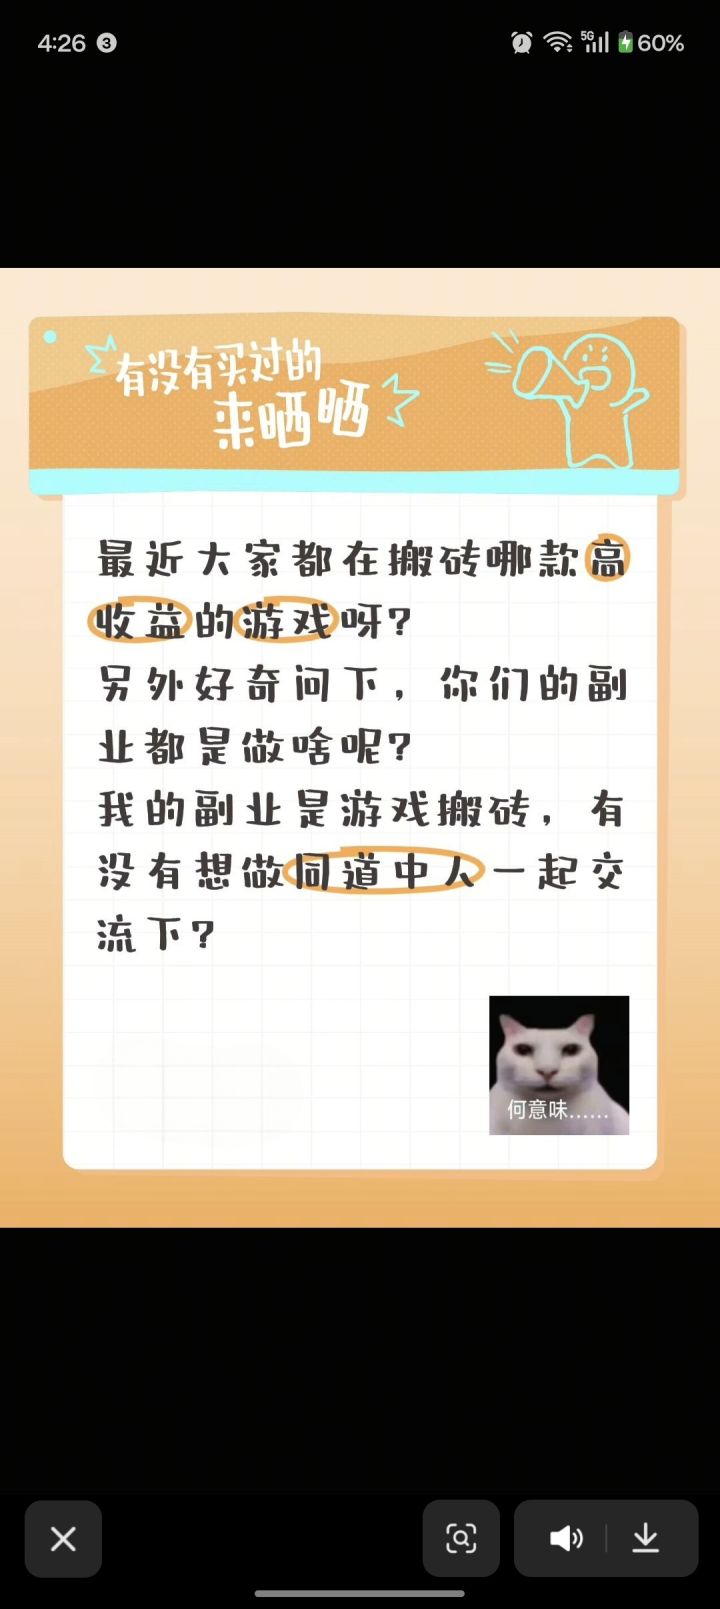 4:26 3 5G 60%
有没有买过的
来晒晒
最近大家都在搬砖哪款高
收益的游戏呀？
另外好奇问下，你们的副
业都是做啥呢？
我的副业是游戏搬砖，有
没有想做同道中人一起交
流下？
何意味……